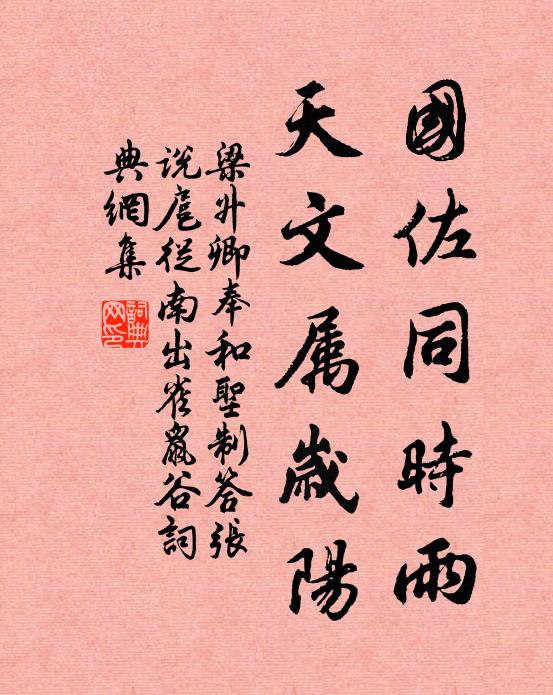 國佐同時雨
天文属歲陽
梁升卿奉和聖制答張
説扈從南出雀鼠谷詞
典網集
詞典
網印